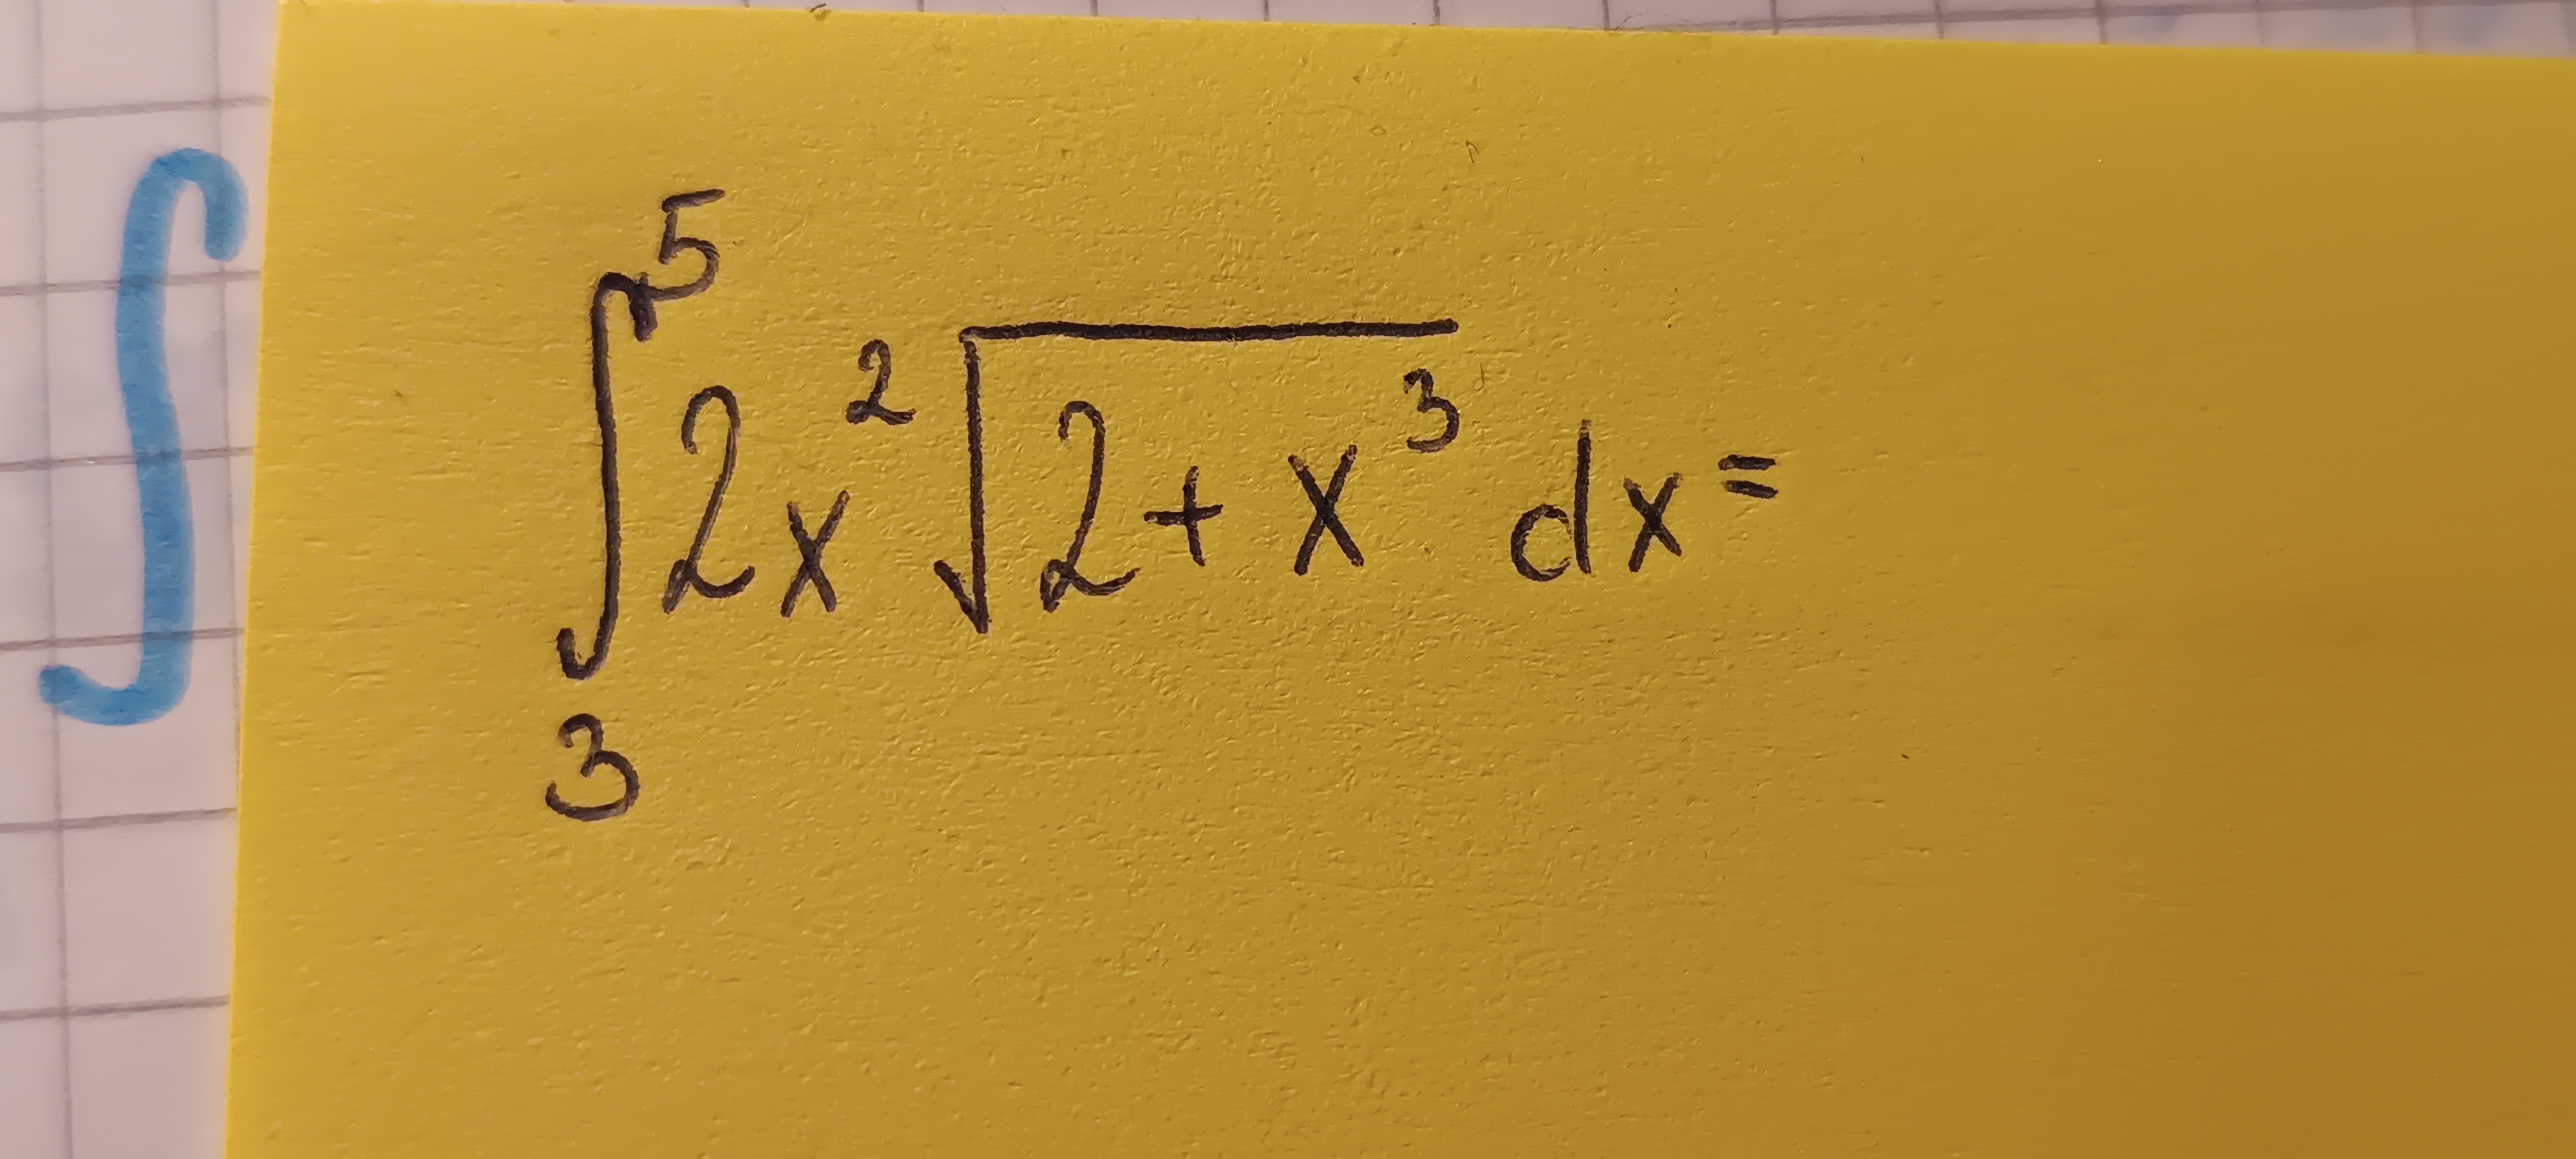 ∫
∫₃⁵ 2x²√(2+x³) dx=